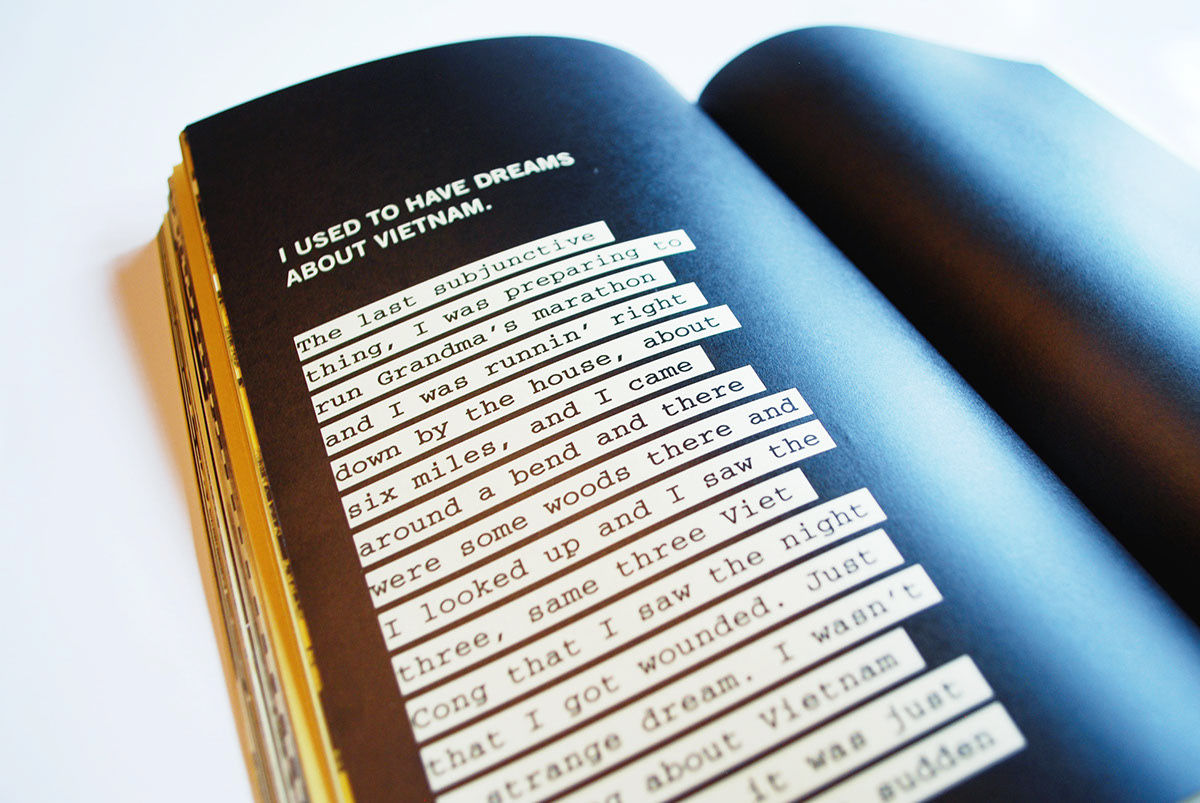 I USED TO HAVE DREAMS
ABOUT VIETNAM.
The last subjunctive
thing, I was preparing to
run Grandma's marathon
and I was runnin' right
down by the house, about
six miles, and I came
around a bend and there
were some woods there and
I looked up and I saw the
three, same three Viet
Cong that I saw the night
that I got wounded. Just
strange dream. I wasn't
about Vietnam
it was just
sudden